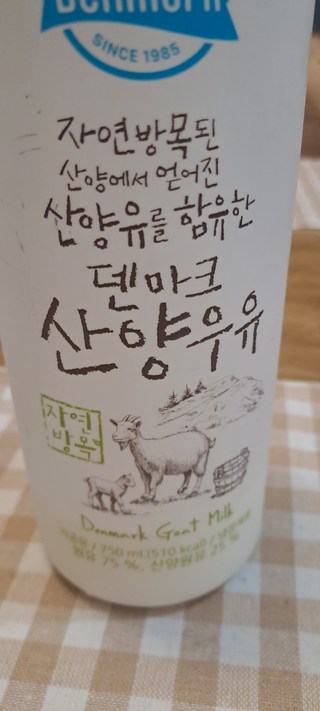 Denmark
SINCE 1985
자연방목된
산양에서 얻어진
산양유를 함유한
덴마크
산양우유
자연
방목
Denmark Goat Milk
750 ml (510 kcal)
원유 75 %, 산양원유 25 %